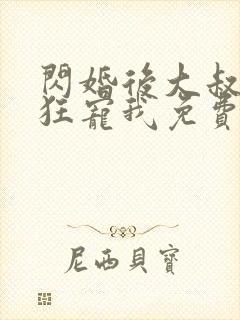 閃婚後大叔
狂寵我免費
尼西貝寶